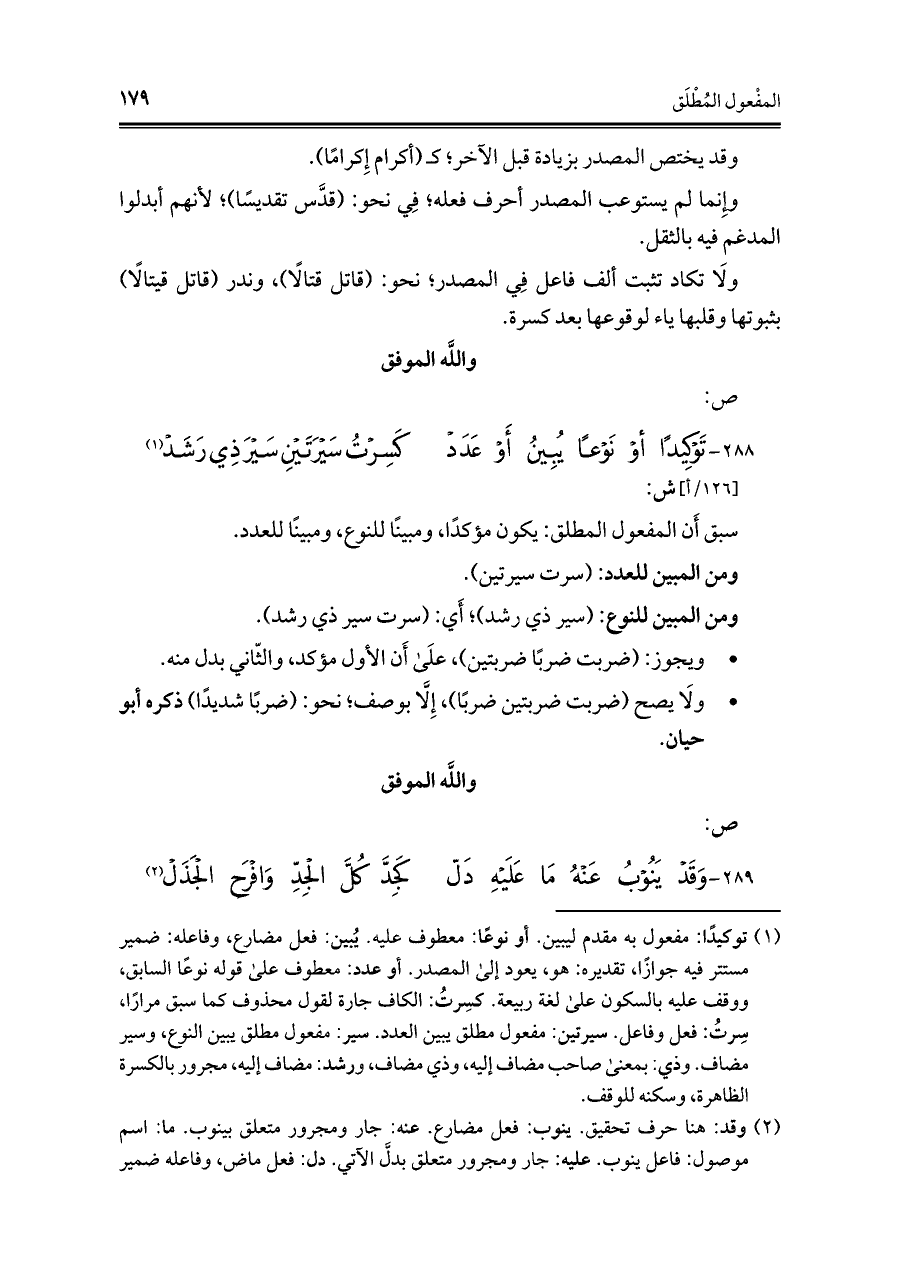 المفْعول المُطْلَق ١٧٩
وقد يختص المصدر بزيادة قبل الآخر؛ كـ (أكرام إِكرامًا).
وإِنما لم يستوعب المصدر أحرف فعله؛ فِي نحو: (قدَّس تقديسًا)؛ لأنهم أبدلوا
المدغم فيه بالثقل.
ولَا تكاد تثبت ألف فاعل فِي المصدر؛ نحو: (قاتل قتالًا)، وندر (قاتل قيتالًا)
بثبوتها وقلبها ياء لوقوعها بعد كسرة.
واللَّه الموفق
ص:
٢٨٨- تَوْكِيدًا أوْ نَوْعًا يُبِينُ أَوْ عَدَدْ كَسِرْتُ سَيْرَتَيْنِ سَيْرَ ذِي رَشَدْ(١)
[١٢٦/أ] ش:
سبق أَن المفعول المطلق: يكون مؤكدًا، ومبينًا للنوع، ومبينًا للعدد.
ومن المبين للعدد: (سرت سيرتين).
ومن المبين للنوع: (سير ذي رشد)؛ أَي: (سرت سير ذي رشد).
• ويجوز: (ضربت ضربًا ضربتين)، علَىٰ أَن الأول مؤكد، والثّاني بدل منه.
• ولَا يصح (ضربت ضربتين ضربًا)، إِلَّا بوصف؛ نحو: (ضربًا شديدًا) ذكره أبو
حيان.
واللَّه الموفق
ص:
٢٨٩- وَقَدْ يَنُوْبُ عَنْهُ مَا عَلَيْهِ دَلّ كَجِدَّ كُلَّ الْجِدِّ وَافْرَحِ الْجَذَلْ(٢)
(١) توكيدًا: مفعول به مقدم ليبين. أو نوعًا: معطوف عليه. يُبين: فعل مضارع، وفاعله: ضمير
مستتر فيه جوازًا، تقديره: هو، يعود إلىٰ المصدر. أو عدد: معطوف علىٰ قوله نوعًا السابق،
ووقف عليه بالسكون علىٰ لغة ربيعة. كسِرتُ: الكاف جارة لقول محذوف كما سبق مرارًا،
سِرتُ: فعل وفاعل. سيرتين: مفعول مطلق يبين العدد. سير: مفعول مطلق يبين النوع، وسير
مضاف. وذي: بمعنىٰ صاحب مضاف إليه، وذي مضاف، ورشد: مضاف إليه، مجرور بالكسرة
الظاهرة، وسكنه للوقف.
(٢) وقد: هنا حرف تحقيق. ينوب: فعل مضارع. عنه: جار ومجرور متعلق بينوب. ما: اسم
موصول: فاعل ينوب. عليه: جار ومجرور متعلق بدلَّ الآتي. دل: فعل ماض، وفاعله ضمير